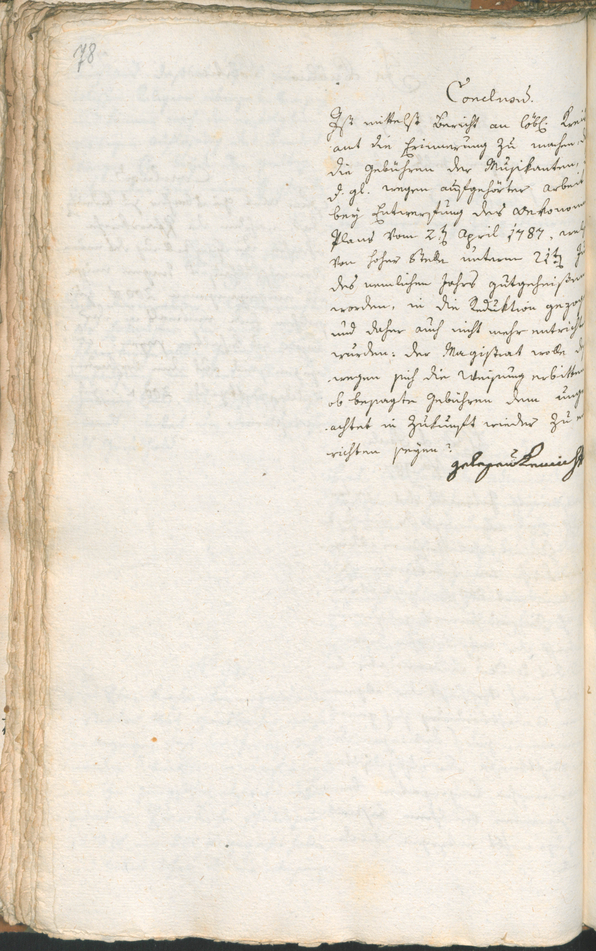 78
Conclusū.
Ist mittelst Bericht an löbl. Krei
amt die Erinnerung zu machen, d
die Gebühren der Musikanten,
d. gl. wegen aufgehörter Arbeit
bey Entwerfung des Oekonom
Plans vom 2ten April 1787. wel
von hoher Stelle unterm 21ten
des nemlichen Jahrs gutgeheißen
worden, in die Reduktion gezog
und daher auch nicht mehr entricht
wurden: der Magistrat wolle d
wegen sich die Weisung erbitten
ob besagte Gebühren dem unge
achtet in Zukunft wieder zu e
richten seyen?